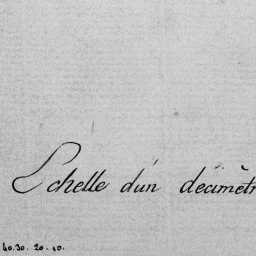 Echelle d'un décimètr
40. 30. 20. 10.